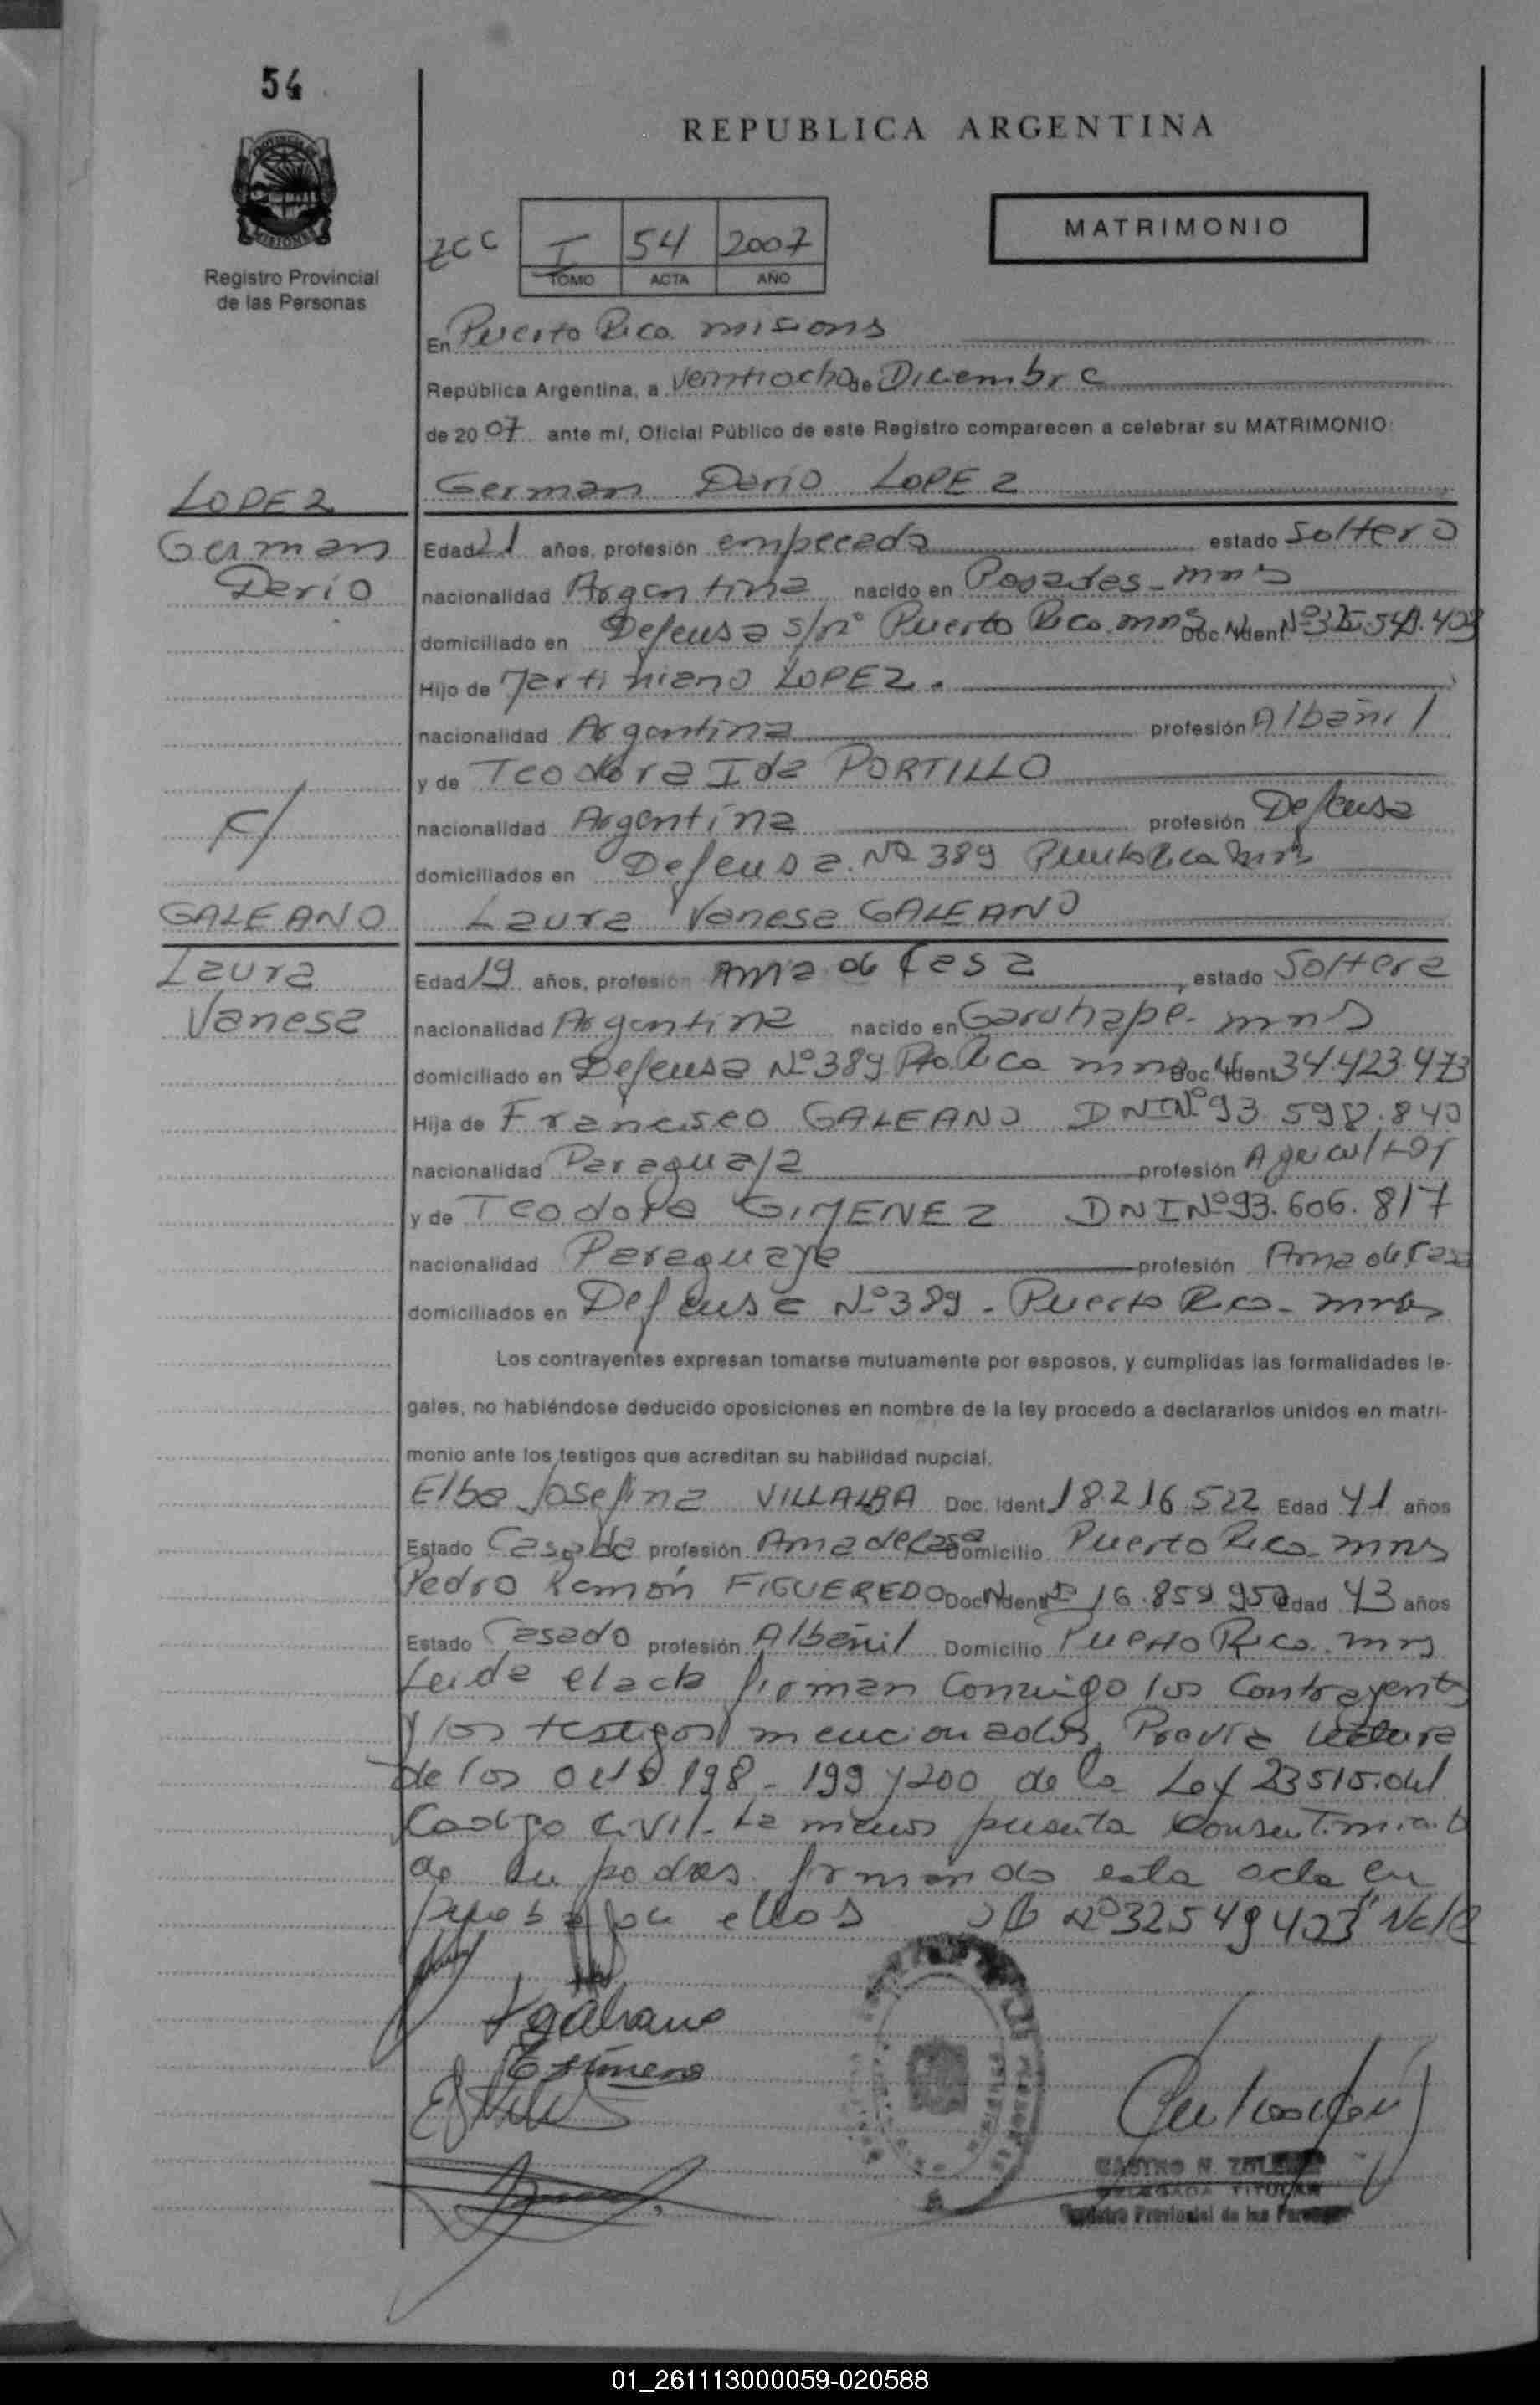 54
PROVINCIA DE
MISIONES
Registro Provincial
de las Personas
REPUBLICA ARGENTINA
MATRIMONIO
I 54 2007
TOMO ACTA AÑO
En Puerto Rico misions
República Argentina, a Veintiocho de Diciembre
de 20 07 ante mí, Oficial Público de este Registro comparecen a celebrar su MATRIMONIO:
LOPEZ German Dario LOPEZ
German Edad 21 años, profesión empleado estado Soltero
Dario nacionalidad Argentina nacido en Posadas - mns
domiciliado en Defensa s/nº Puerto Rico mns Doc. Ident Nº
Hijo de LOPEZ.
nacionalidad Argentina profesión Albañil
y de Teodora Ida PORTILLO
c/ nacionalidad Argentina profesión Defensa
domiciliados en Defensa Nº 389 Puerto Rica mns
GALEANO Laura Vanesa GALEANO
Laura Edad 19 años, profesión Ama de Casa, estado Soltera
Vanesa nacionalidad Argentina nacido en Garuhape - mns
domiciliado en Defensa Nº 389 Pto Rico mns Doc. Ident 34.423.473
Hija de Francisco GALEANO DNI Nº 93.598.840
nacionalidad Paraguaya profesión Agricultor
y de Teodora GIMENEZ DNI Nº 93.606.817
nacionalidad Paraguaya profesión Ama de Casa
domiciliados en Defensa Nº 389 - Puerto Rico - mns
Los contrayentes expresan tomarse mutuamente por esposos, y cumplidas las formalidades le-
gales, no habiéndose deducido oposiciones en nombre de la ley procedo a declararlos unidos en matri-
monio ante los testigos que acreditan su habilidad nupcial.
Elba Josefina VILLALBA Doc. Ident 18.216.522 Edad 41 años
Estado Casada profesión Ama de Casa Domicilio Puerto Rico mns
Pedro Ramón FIGUEREDO Doc. Ident Nº 16.859.950 Edad 43 años
Estado Casado profesión Albañil Domicilio Puerto Rico mns
Leida el acta firman Conmigo los Contrayentes
y los testigos mencionados, Previa Lectura
de los arts 198 - 199 y 200 de la Ley 23515 del
Codigo Civil - La menor presenta Consentimiento
de su padres firmando esta acta en
prueba por ellos Nº 32549403" Vale
Galeano
CASTRO N.
DELEGADA TITULAR
Registro Provincial de las Personas
01_261113000059-020588